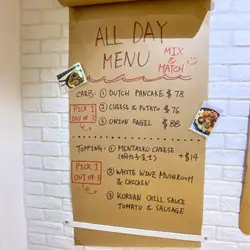 ALL DAY
MENU
MIX
&
MATCH
CARB:
PICK 1
OUT OF 3
① DUTCH PANCAKE $78
② CHEESE & POTATO $76
③ ONION BAGEL $88
TOPPING:
PICK 1
OUT OF 3
① MENTAIKO CHEESE
+$14
② WHITE WINE MUSHROOM
& CHICKEN
③ KOREAN CHILL SAUCE
TOMATO & SAUSAGE